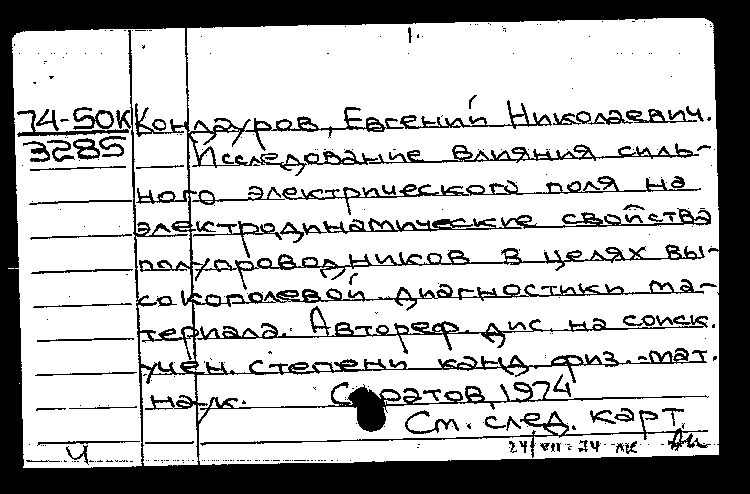 1.
74-50К Кондауров, Евгений Николаевич.
3285 Исследование влияния силь-
ного электрического поля на
электродинамические свойства
полупроводников в целях вы-
сокополевой диагностики ма-
териала. Автореф. дис. на соиск.
учен. степени канд. физ.-мат.
наук. Саратов, 1974
См. след. карт.
Ч 24/VII-74